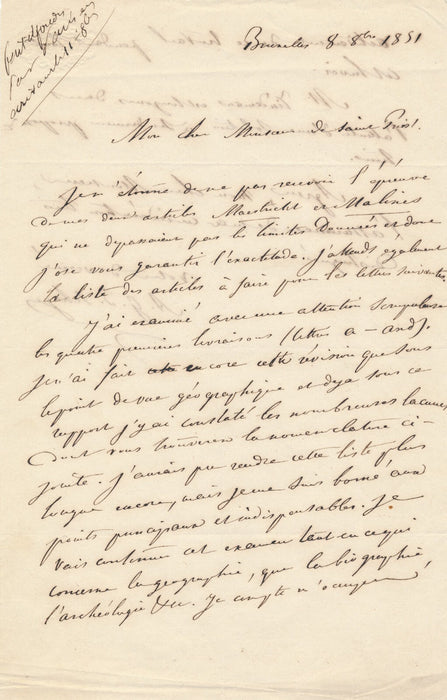 par
Bruxelles 8 8bre 1851
Mon cher Monsieur de Saint Priest.
Je m'étonne de ne pas recevoir l'épreuve
de mes deux articles Maestricht et Malines
qui ne dépassaient pas les limites données et dont
j'ose vous garantir l'exactitude. J'attends également
la liste des articles à faire pour les lettres suivantes.
J'ai examiné avec une attention scrupuleuse
les quatre premières livraisons (lettre a – and).
Je n'ai fait encore cette révision que sous
le point de vue géographique et déjà sous ce
rapport j'y ai constaté les nombreuses lacunes
dont vous trouverez la nomenclature ci-
jointe. J'aurais pu rendre cette liste plus
longue encore, mais je me suis borné aux
points principaux et indispensables. Je
vais continuer cet examen tant en ce qui
concerne la géographie, que la biographie,
l'archéologie &c. Je compte m'occuper,